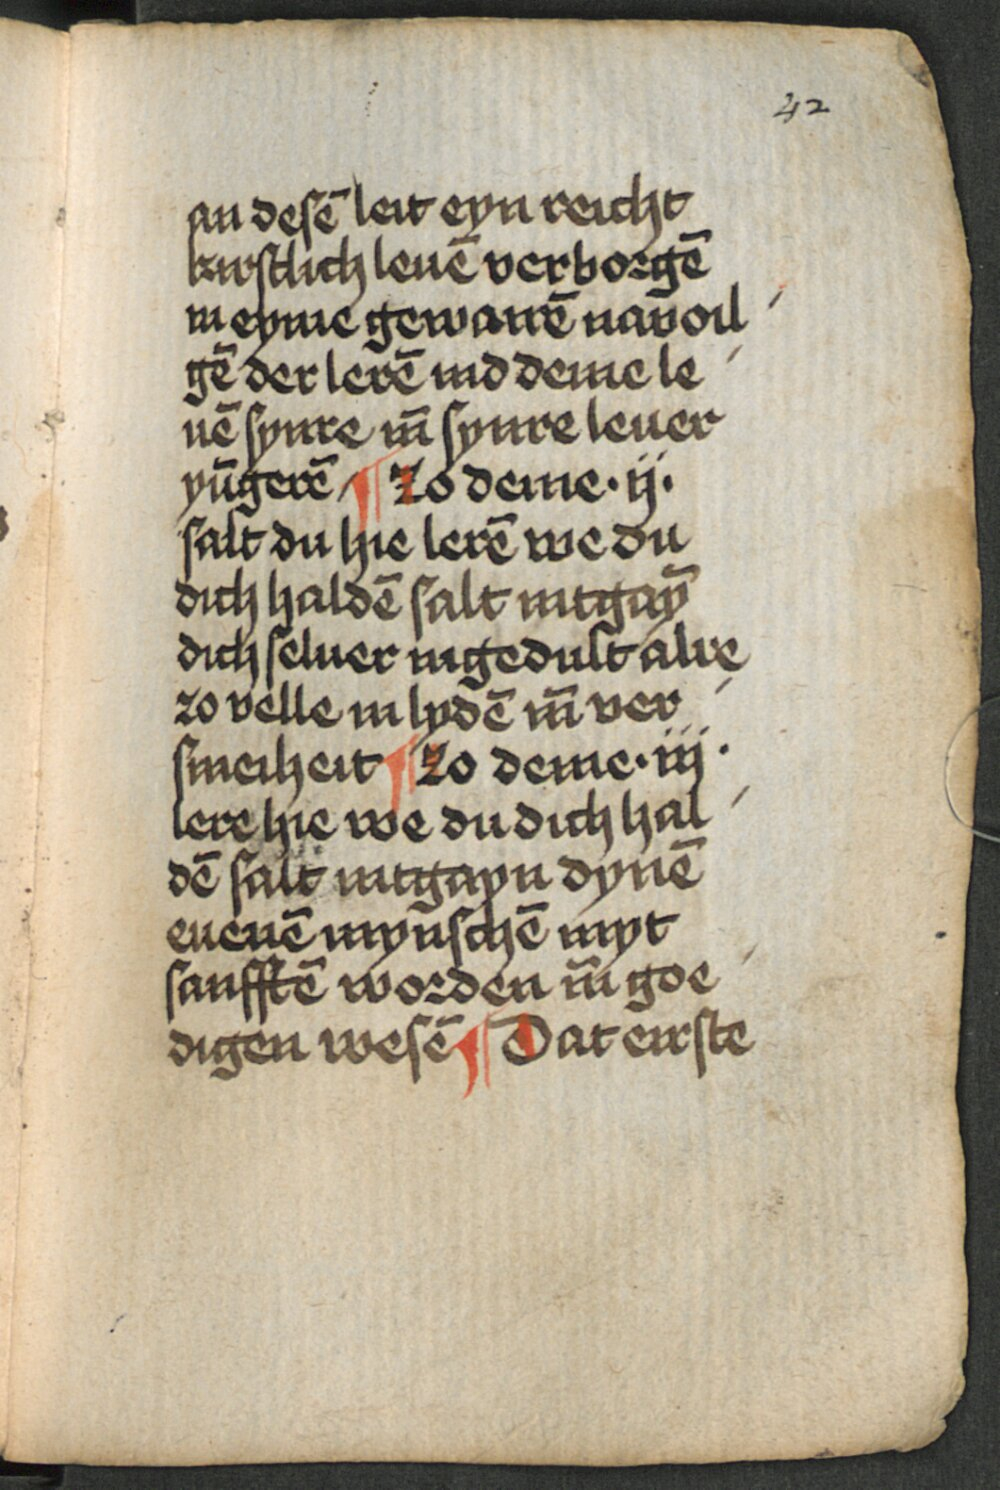 42
an desē leit eyn reicht
kirstlich leuē verborgē
in eyme gewarrē navoil
gē der lerē ind deme le
uē synre iñ synre leuer
yūgerē ¶ Zo deme · ij ·
salt du hie lerē we du
dich haldē salt intgaȳ
dich seluer ingedult alre
zo velle in lydē iñ ver
smeiheit ¶ Zo deme · iij ·
lere hie we du dich hal
dē salt intgayn dynē
euenē mȳnschē myt
sanfftē worden iñ goe
digen wesē ¶ Dat eirste